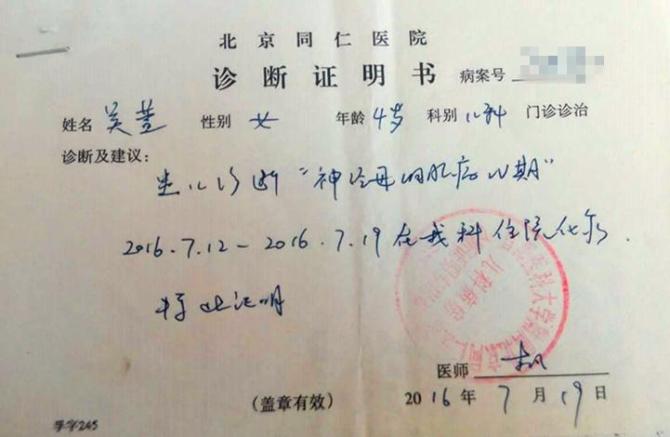 北京同仁医院
诊断证明书 病案号
姓名 吴萱 性别 女 年龄 4岁 科别 儿科 门诊诊治
诊断及建议:
患儿诊断“神经母细胞瘤Ⅳ期”
2016.7.12－2016.7.19在我科住院化疗.
特此证明
医师
(盖章有效) 2016年7月19日
季字245